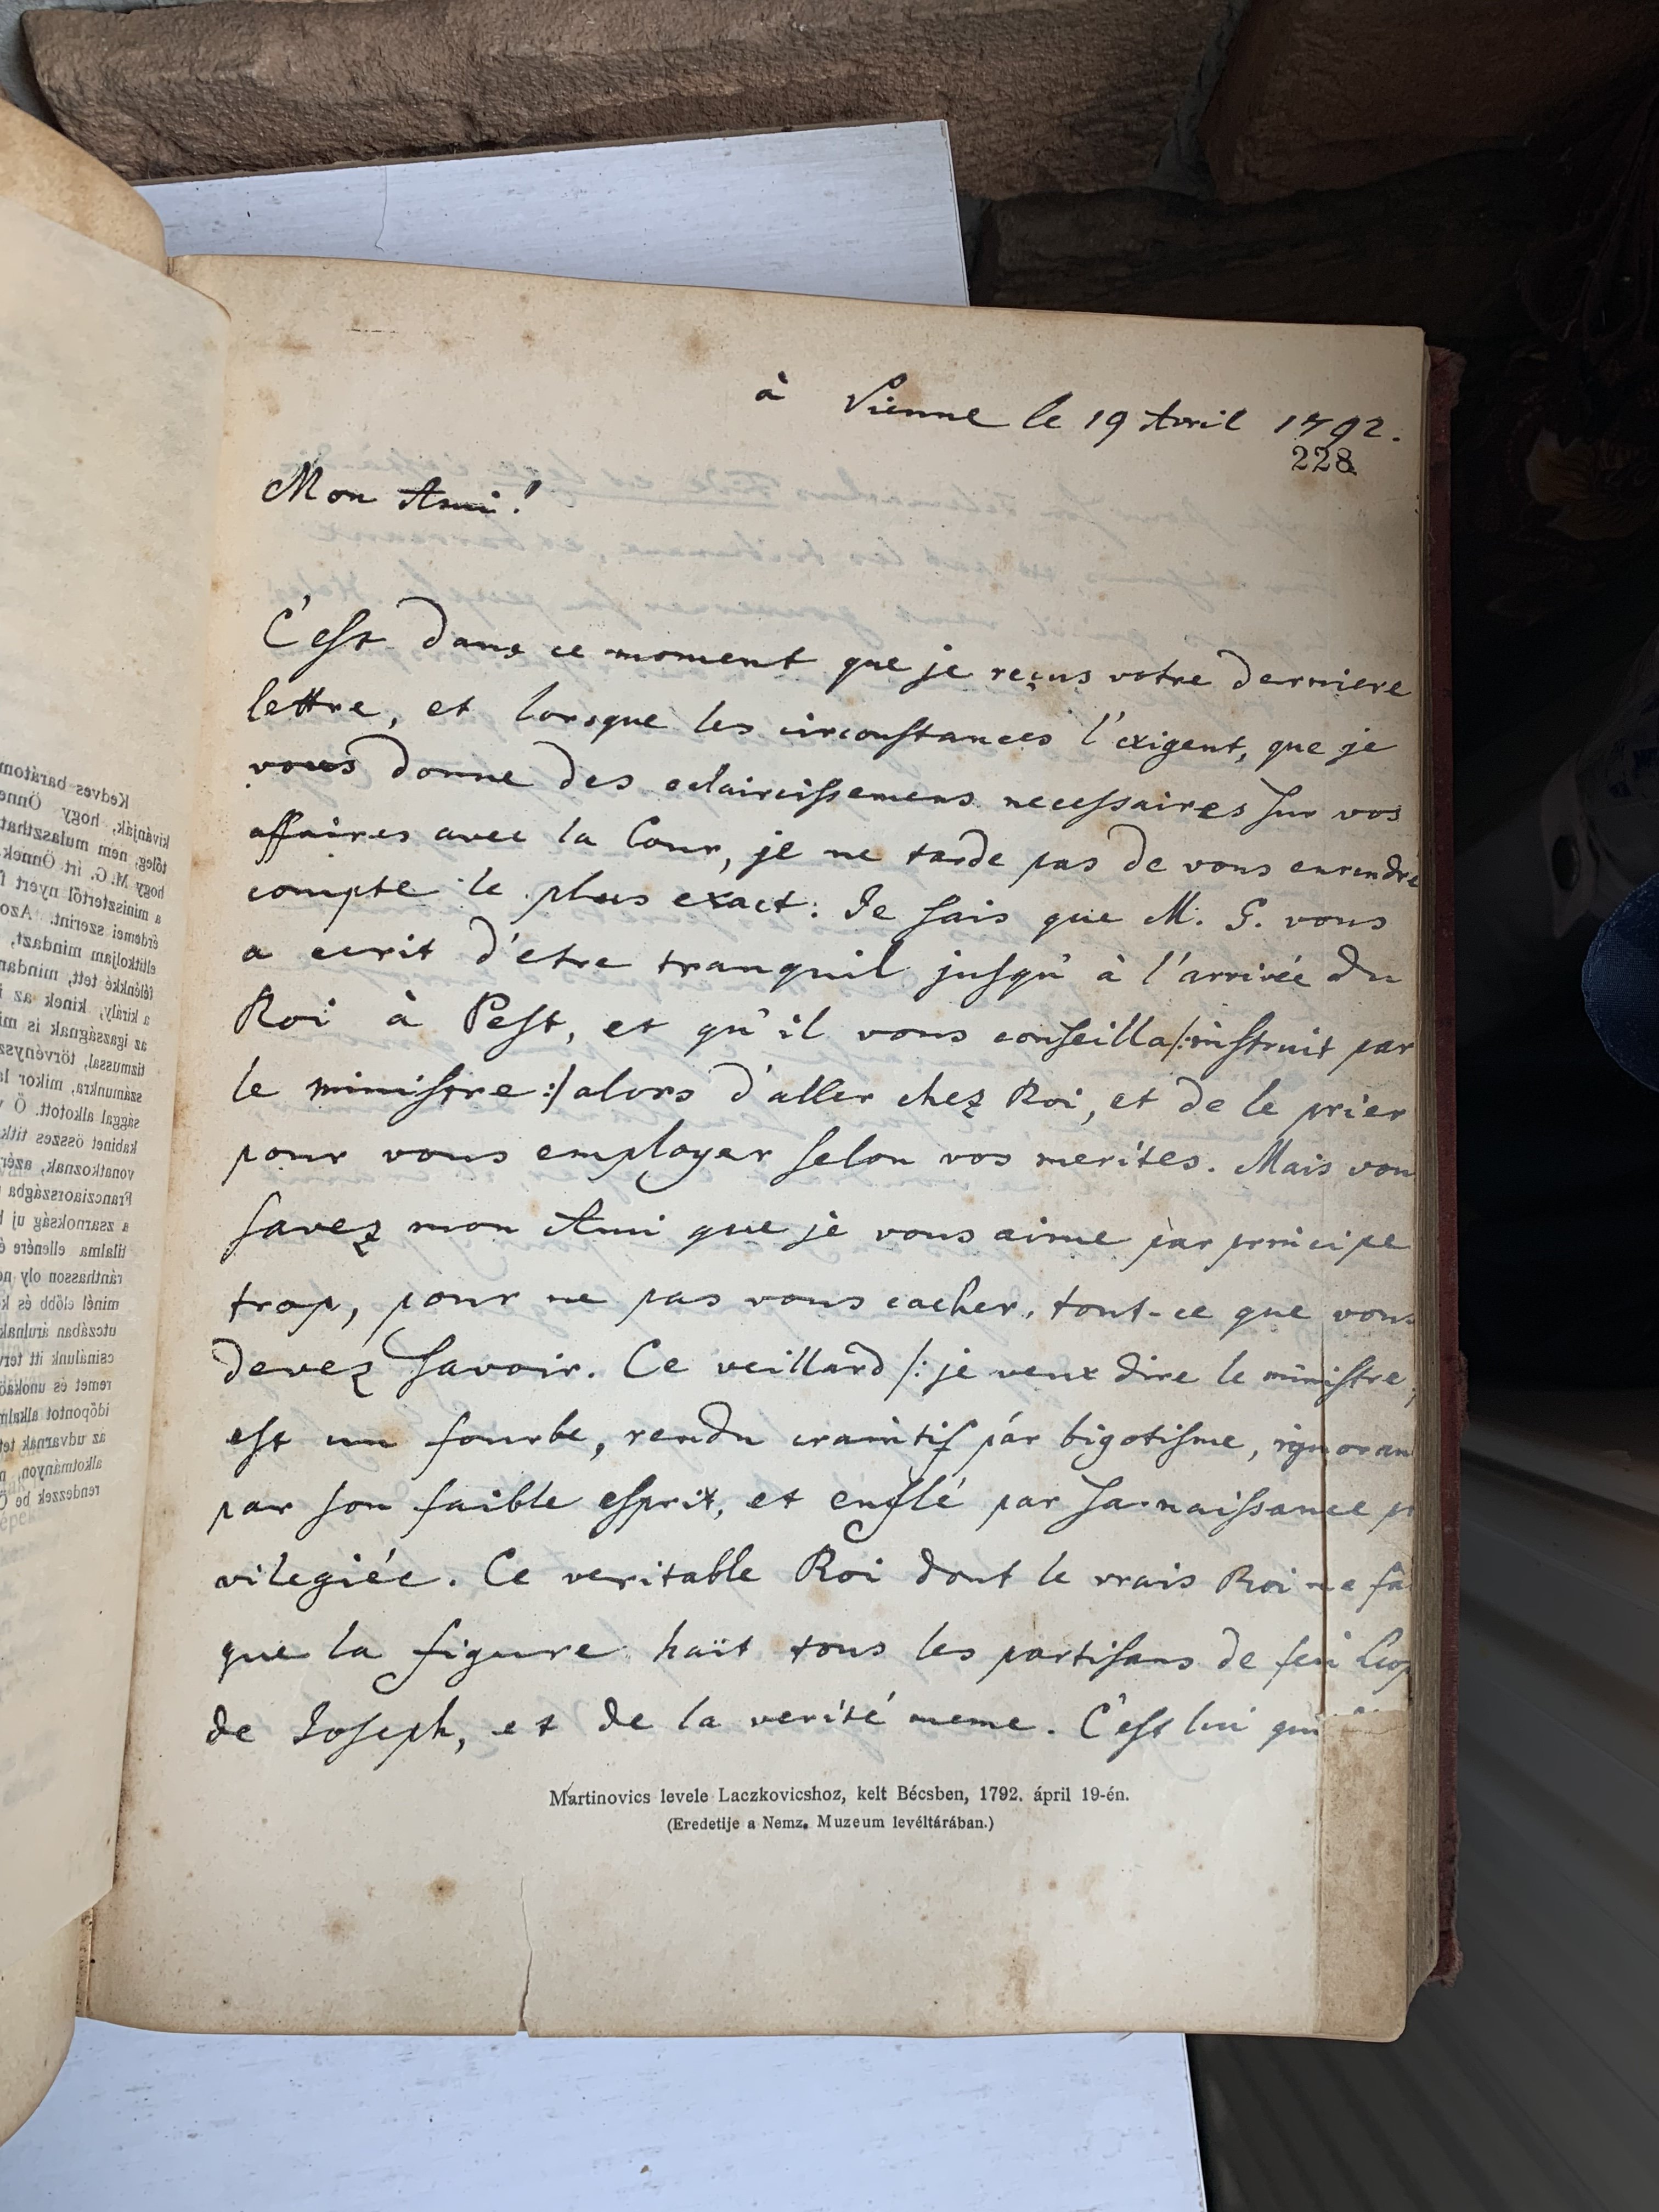 à Vienne le 19 Avril 1792.
228
Mon Ami!
C'est dans ce moment que je reçus votre derniere
lettre, et lorsque les circonstances l'exigent, que je
vous donne des eclaircissemens necessaires sur vos
affaires avec la Cour, je ne tarde pas de vous enrendre
compte le plus exact: Je sais que M. G. vous
a ecrit d'etre tranquil jusqu' à l'arrivée du
Roi à Pest, et qu'il vous conseilla /: instruit par
le ministre :/ alors d'aller chez Roi, et de le prier
pour vous employer selon vos merites. Mais vou
savez mon Ami que je vous aime par principe
trop, pour ne pas vous cacher, tout-ce que vous
devez savoir. Ce veillard /: je veux dire le ministre
est un fourbe, rendu craintif pár bigotisme, ignoran
par son faible esprit, et enflé par sa naissance pr
vilegiée. Ce veritable Roi dont le vrais Roi ne fa
que la figure haït tous les partisans de feu Leop
de Joseph, et de la verité meme. C'est lui qui
Martinovics levele Laczkovicshoz, kelt Bécsben, 1792. ápril 19-én.
(Eredetije a Nemz. Muzeum levéltárában.)
Kedves barátom
kivánják, hogy Önne
tőleg, nem mulaszthat
hogy M. G. írt Önnek
a minisztertől nyert
érdemei szerint. Azo
eltitkoljam mindazt,
félénkké tett, mindan
a király, kinek az
az igazságnak is mi
tizmussal, törvénysz
számunkra, mikor la
sággal alkotott. Ő v
kabinet összes titk
vonatkoznak, azér
Francziaországba
a zsarnokság uj
tilalma ellenére é
ránthasson oly ne
minél előbb és k
utczában árulnak
csinálunk itt terv
remet és unokaö
időpontot alkalm
az udvarnak tet
alkotmányon, n
rendezzek be Ö